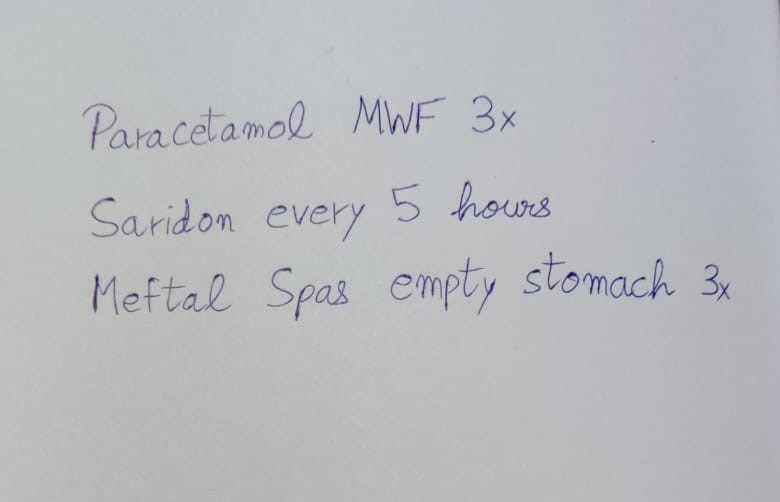 Paracetamol MWF 3x
Saridon every 5 hours
Meftal Spas empty stomach 3x